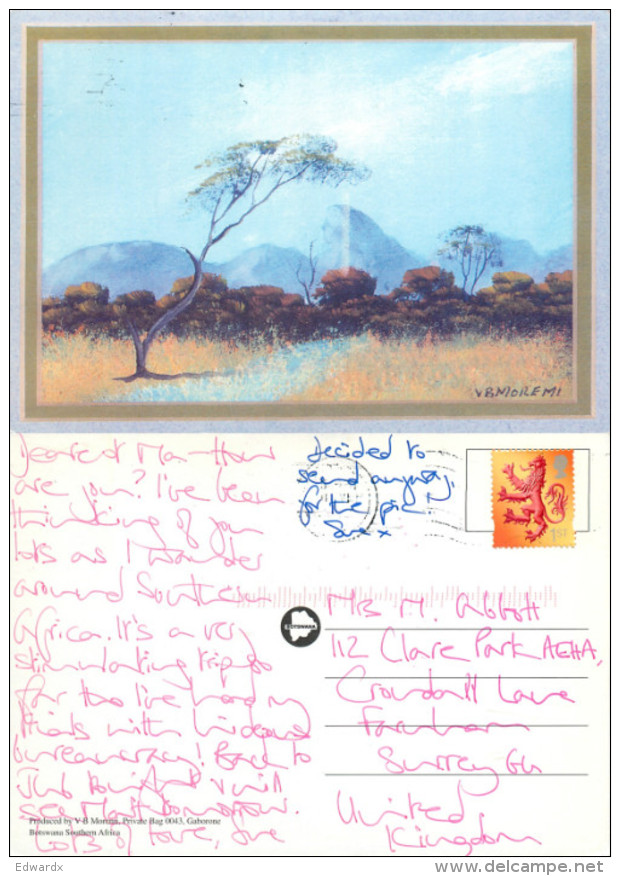 V B MOREMI
Dearest Ma - How
are you? I've been
thinking of you
lots as I wander
around Southern
Africa. It's a very
stimulating trip so
far tho I've had my
trials with hideous
bureaucracy! Back to
Jhb tonight & will
see Matt tomorrow.
Lots of love, Sue
decided to
send anyway,
for the pic!
Sue x
1ST
BOTSWANA
Mrs M. Abbott
112 Clare Park AEHA,
Crondall Lane
Farnham
Surrey GU
United
Kingdom
Produced by V B Moremi, Private Bag 0043, Gaborone
Botswana Southern Africa
Edwardx
www.delcampe.net